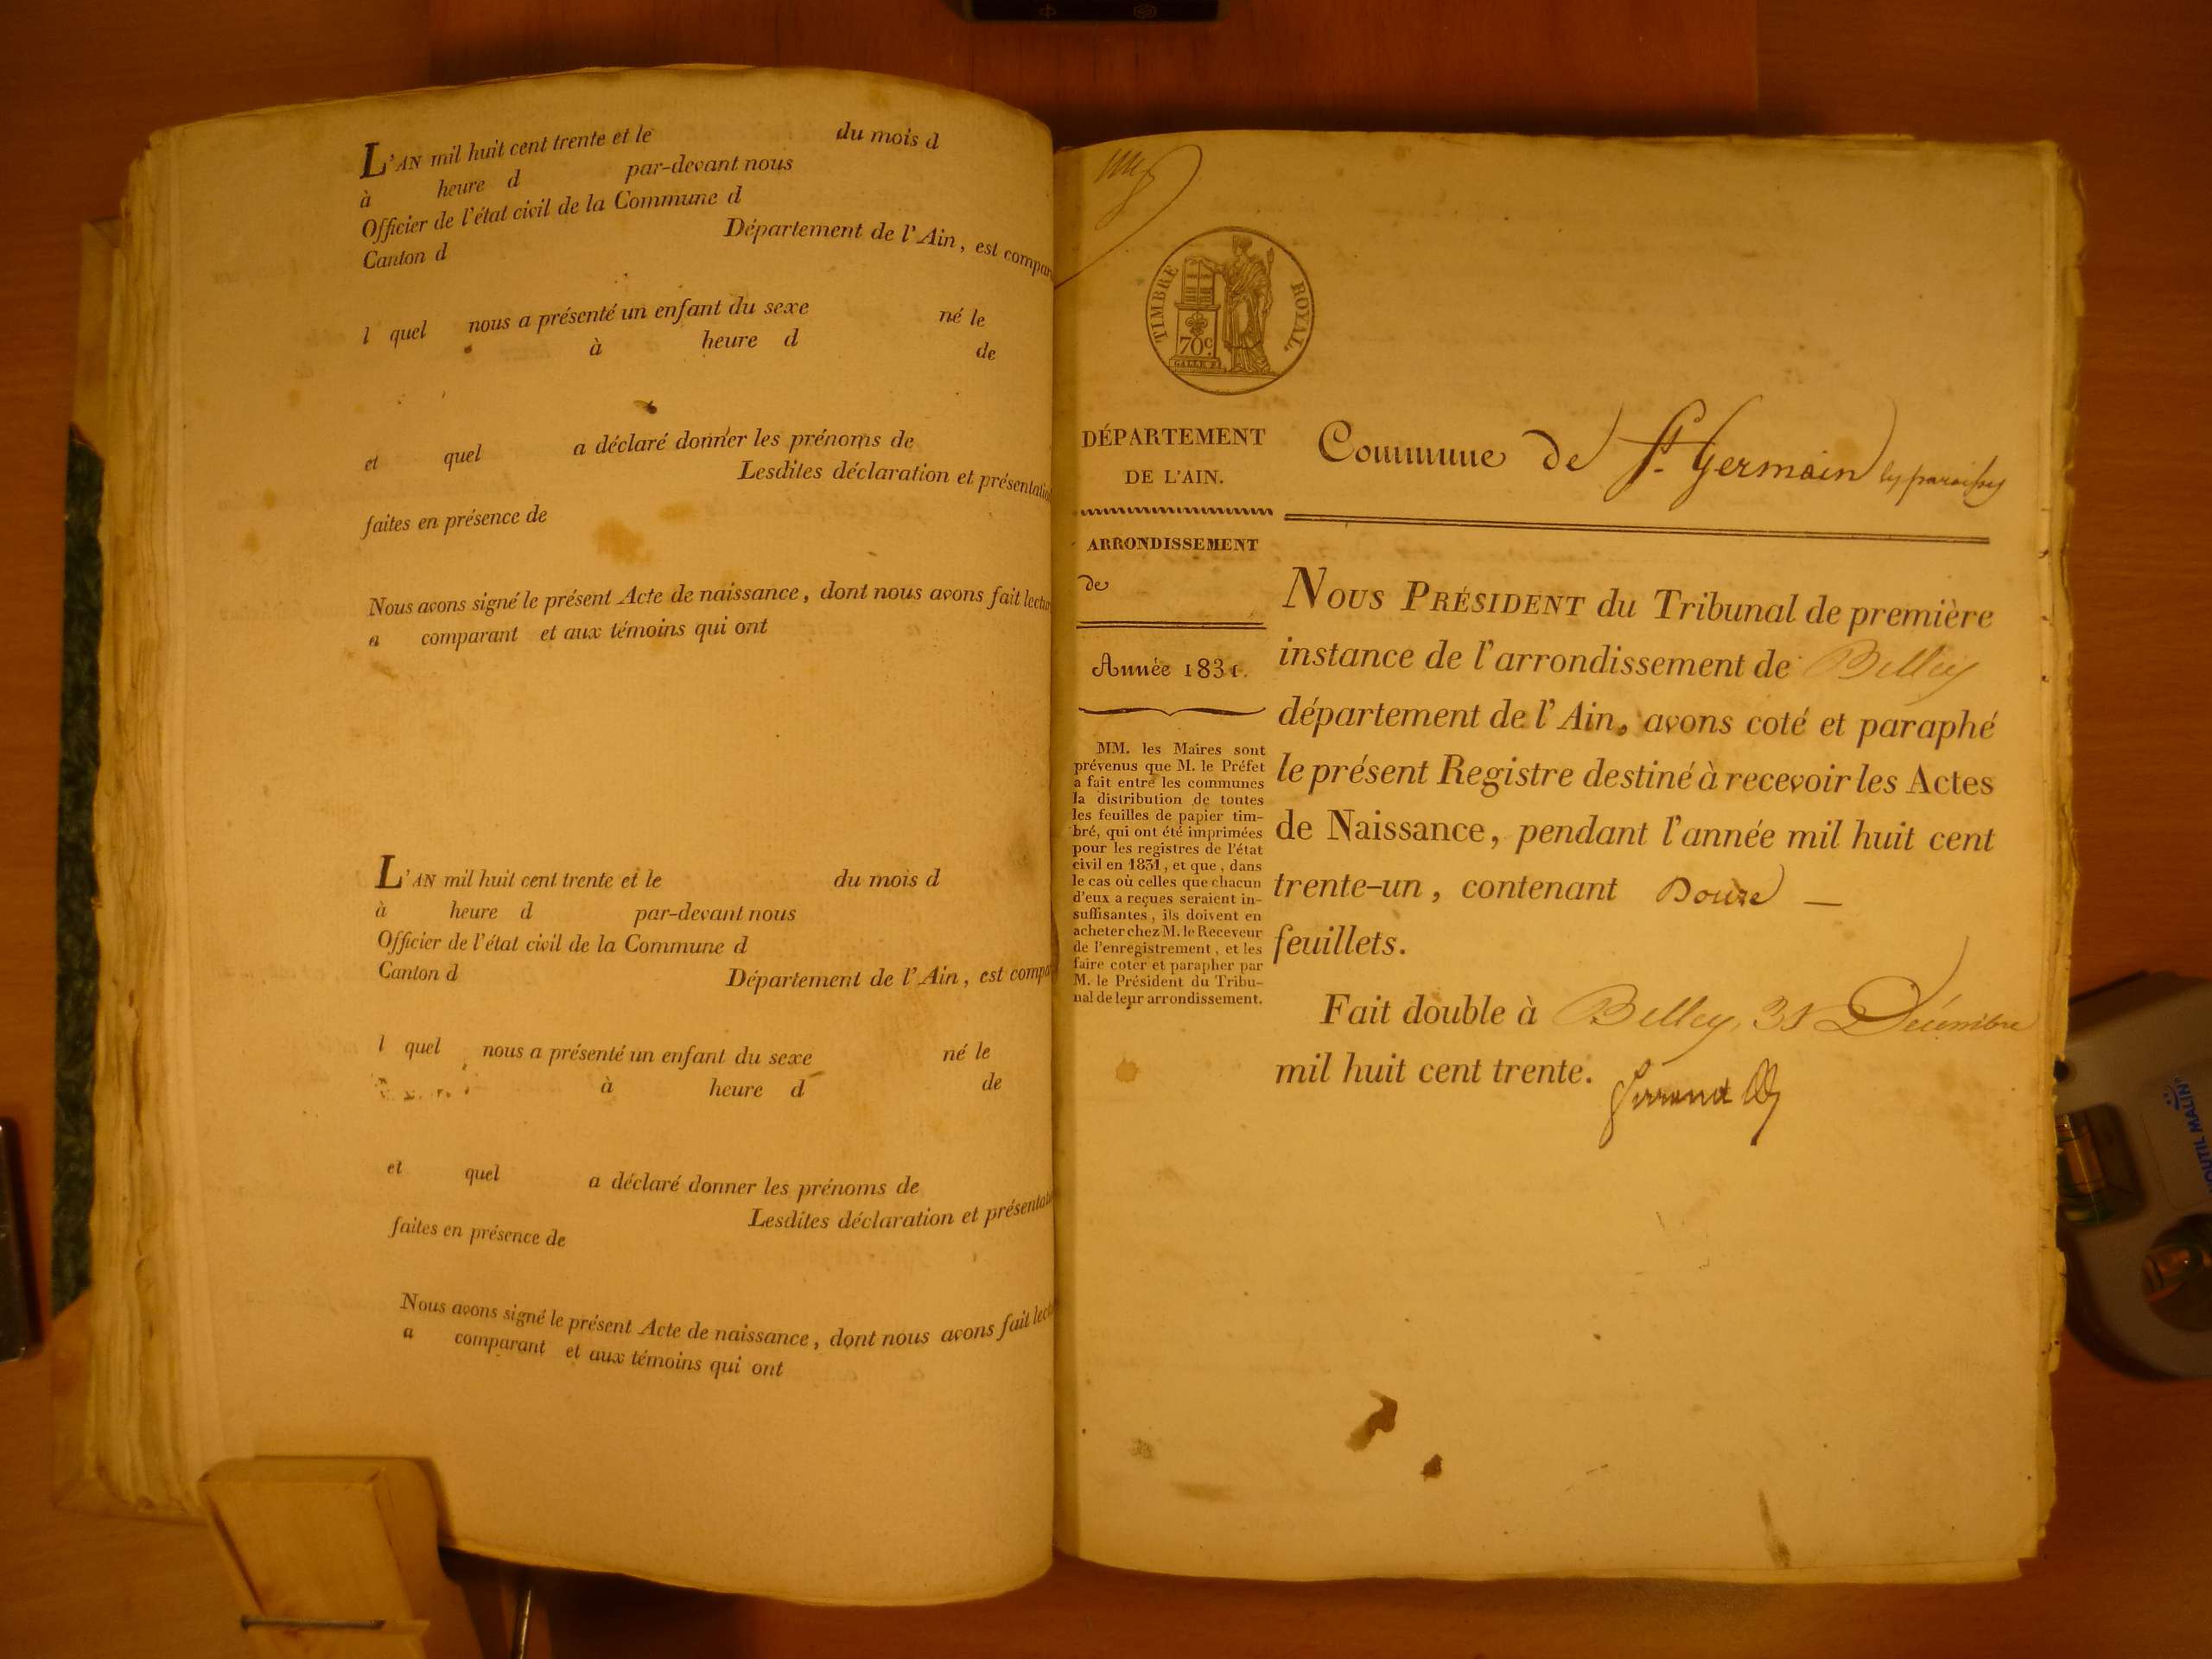 L'AN mil huit cent trente et le du mois d
à heure d par-devant nous
Officier de l'état civil de la Commune d
Canton d Département de l'Ain, est compar
l quel nous a présenté un enfant du sexe né le
à heure d de
et quel a déclaré donner les prénoms de
Lesdites déclaration et présentatio
faites en présence de
Nous avons signé le présent Acte de naissance, dont nous avons fait lectur
a comparant et aux témoins qui ont
L'AN mil huit cent trente et le du mois d
à heure d par-devant nous
Officier de l'état civil de la Commune d
Canton d Département de l'Ain, est compa
l quel nous a présenté un enfant du sexe né le
à heure d de
et quel a déclaré donner les prénoms de
Lesdites déclaration et présentat
faites en présence de
Nous avons signé le présent Acte de naissance, dont nous avons fait lect
a comparant et aux témoins qui ont
TIMBRE ROYAL
70c.
GALLE F.
DÉPARTEMENT
DE L'AIN.
ARRONDISSEMENT
de
Année 1831.
MM. les Maires sont
prévenus que M. le Préfet
a fait entre les communes
la distribution de toutes
les feuilles de papier tim-
bré, qui ont été imprimées
pour les registres de l'état
civil en 1831, et que, dans
le cas où celles que chacun
d'eux a reçues seraient in-
suffisantes, ils doivent en
acheter chez M. le Receveur
de l'enregistrement, et les
faire coter et parapher par
M. le Président du Tribu-
nal de leur arrondissement.
Commune de St. Germain les paroisses
NOUS PRÉSIDENT du Tribunal de première
instance de l'arrondissement de Belley
département de l'Ain, avons coté et paraphé
le présent Registre destiné à recevoir les Actes
de Naissance, pendant l'année mil huit cent
trente-un, contenant Douze —
feuillets.
Fait double à Belley, 31 Décembre
mil huit cent trente.
OUTIL MALIN